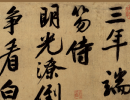 三年端
笏侍
明光潦倒
争看白